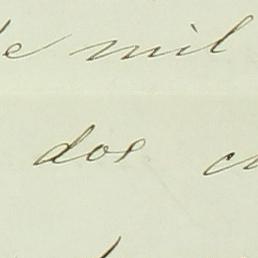 de mil
dos